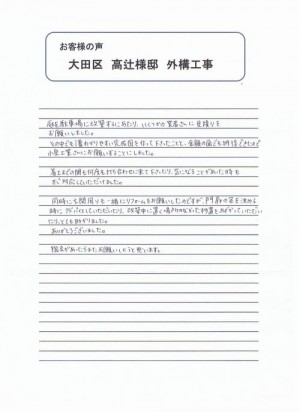 お客様の声
大田区 高辻様邸 外構工事
庭を駐車場に改望するにあたり、いくつかの業者さんに見積りを
お願いしました。
その中でも1番わかりやすい完成図を作って下さったことと、金額の面でも納得できたので
小泉工業さんにお願いすることにしました。
着工までの間も何度も打ち合わせに来て下さったり、気になることがあった時も
すぐ対応していただけました。
同時に玄関周りも一緒にリフォームをお願いしたのですが、門扉の色を決める
時にアドバイスしていただいたり、改装中に置く場所のなかった物置をあずかっていただい
たり、とても助かりました。
ありがとうございました。
機会があったらまたお願いしたいと思います。